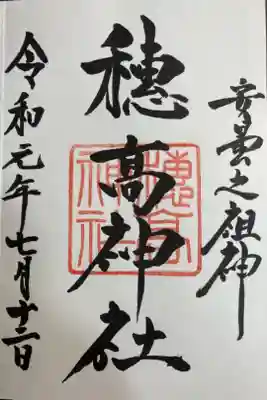 安曇之祖神
穗高神社
穗高
神社
令和元年七月十二日